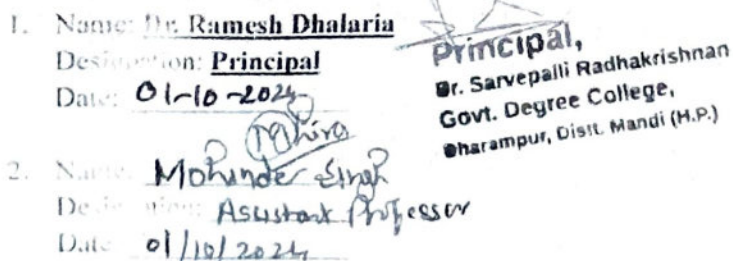 1. Name: Dr. Ramesh Dhalaria
Designation: Principal
Date: 01-10-2024
Principal,
Dr. Sarvepalli Radhakrishnan
Govt. Degree College,
Dharampur, Distt. Mandi (H.P.)
2. Name: Mohinder Singh
Designation: Assistant Professor
Date: 01/10/2024